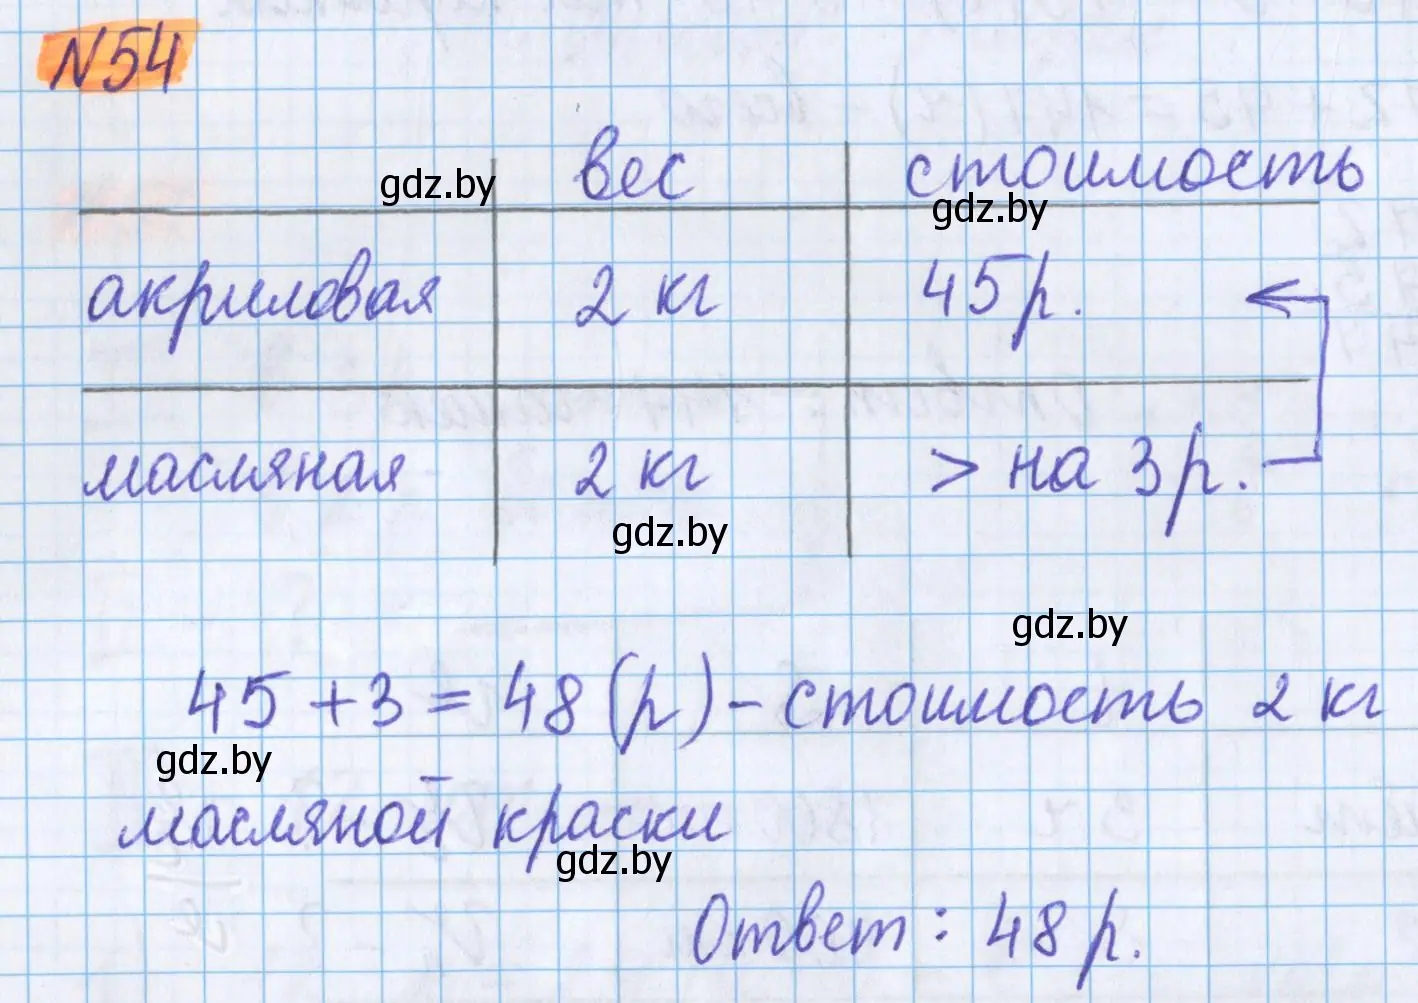 N54
gdz.by вес стоимость
gdz.by
акриловая 2 кг 45 р.
масляная 2 кг > на 3 р.
gdz.by
gdz.by
45 + 3 = 48 (р) - стоимость 2 кг
gdz.by
масляной краски
gdz.by
Ответ: 48 р.